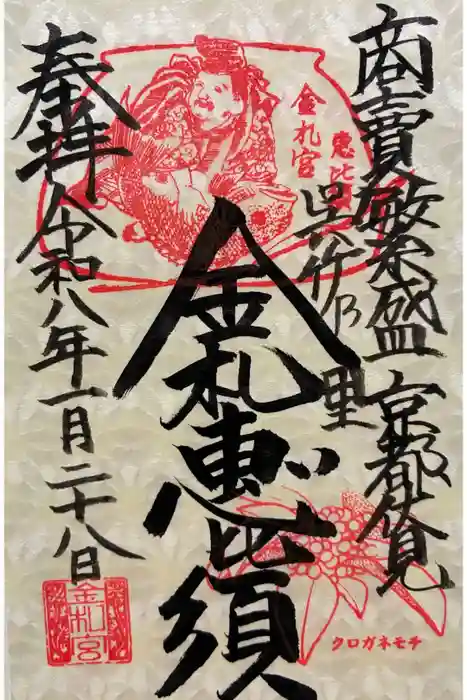 商賣繁盛 京都伏見
呉竹乃里
金札宮
恵比
金札恵比須
奉拝
令和八年一月二十八日
金札宮
クロガネモチ